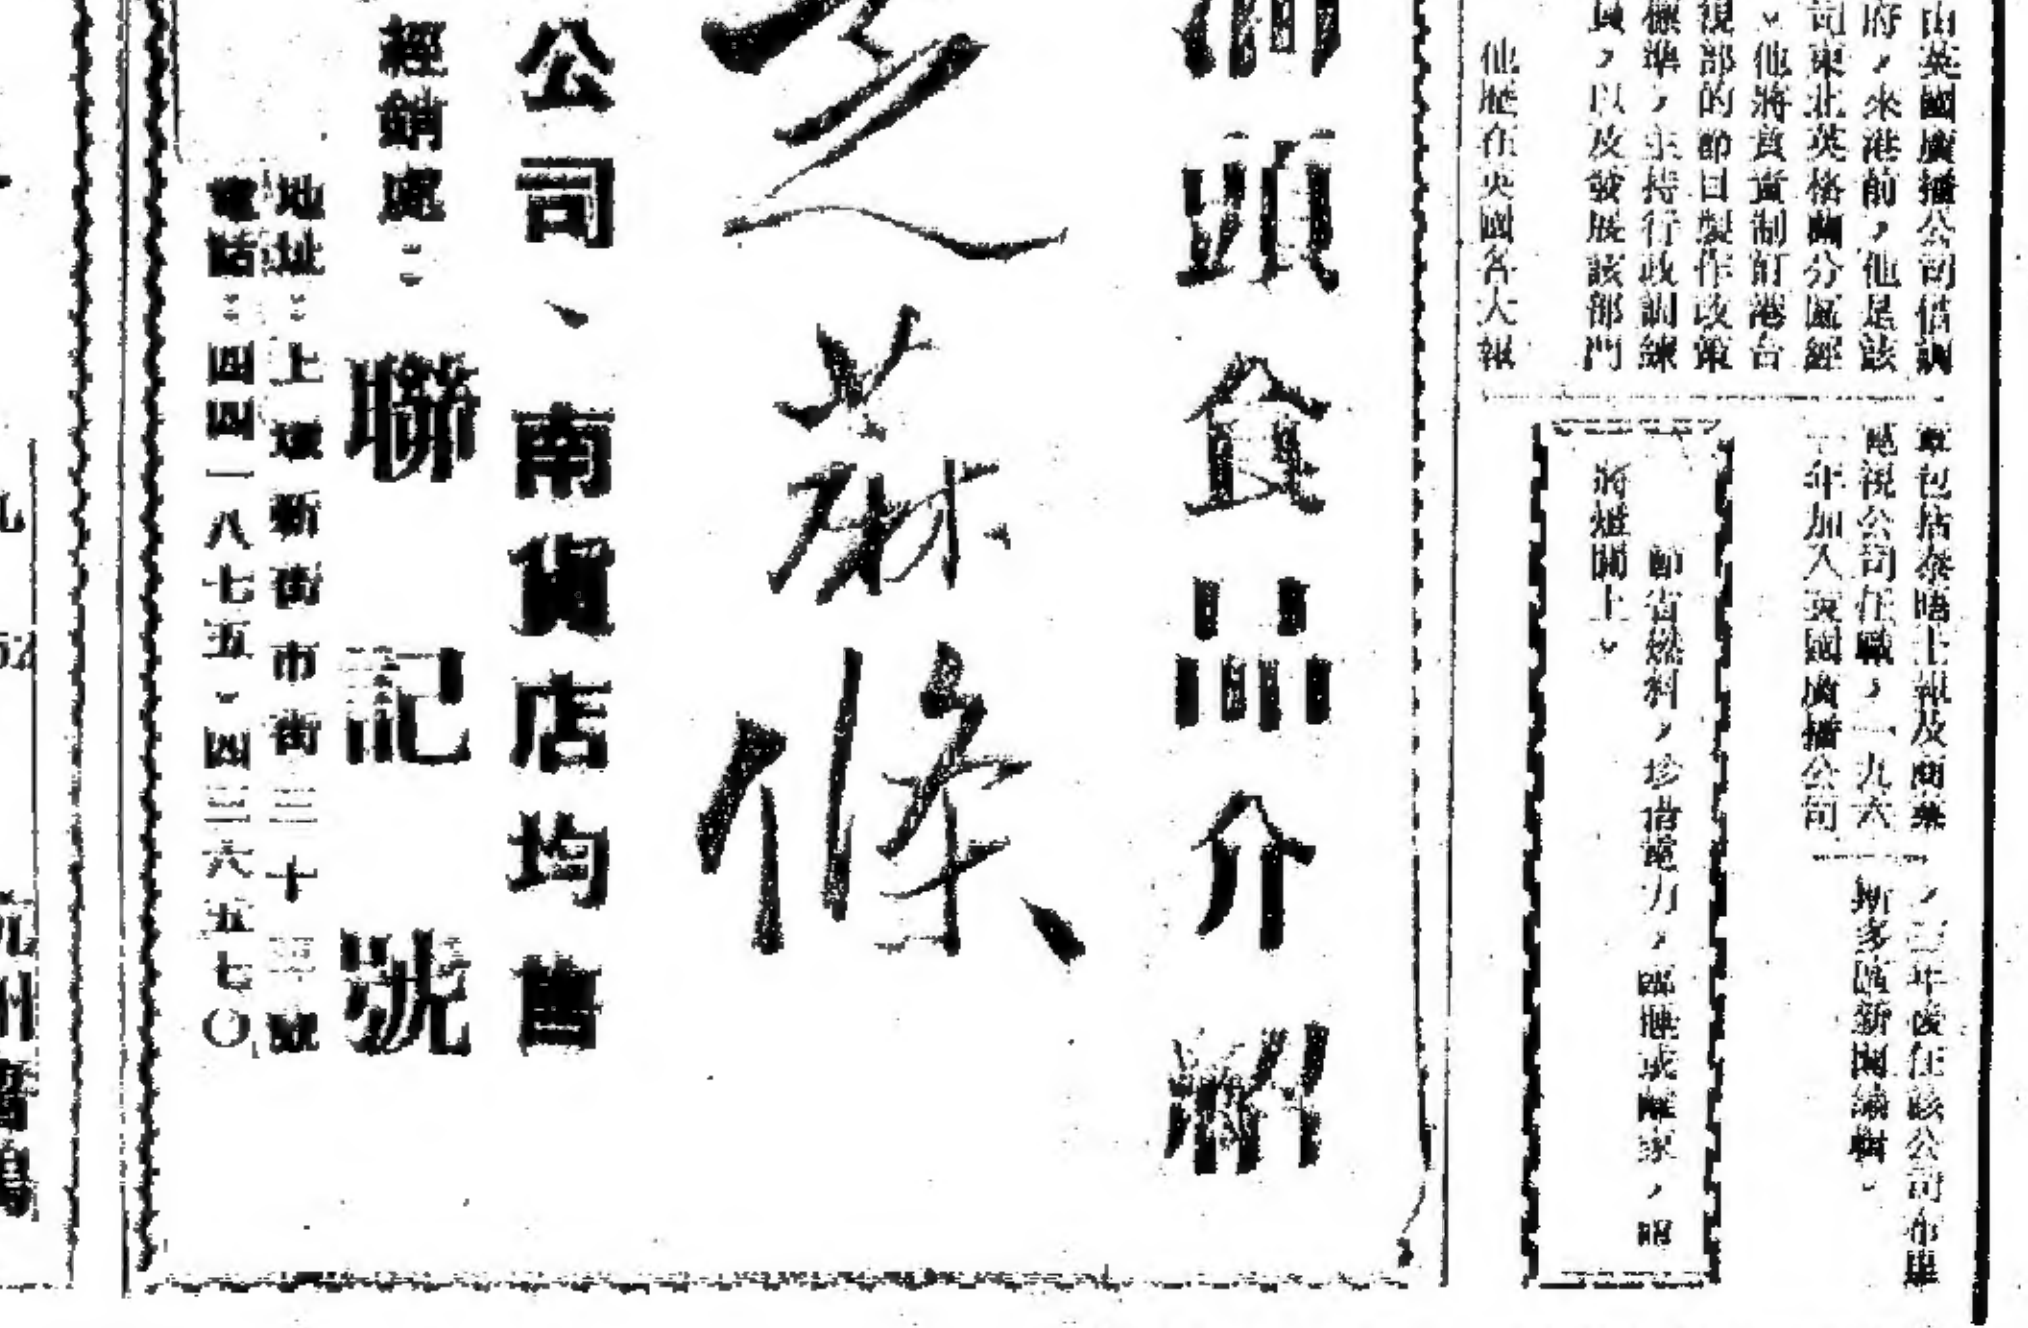 由英國廣播公司借調
府，來港前，他是該
司東北英格蘭分區經
。他將負責制訂港台
視部的節目製作政策
標準，主持行政訓練
員，以及發展該部門
他歷在英國各大報
章包括泰晤士報及商業
電視公司任職，一九六
年加入英國廣播公司
，三年後任該公司布里
斯多區新聞編輯。
節省燃料，珍惜電力，臨睡或離家，請
將燈關上。
頭食品介紹
芝蔴條
公司、南貨店均售
經銷處：
聯記號
地址：上環新街市街三十三號
電話：四四一八七五。四三六五七〇